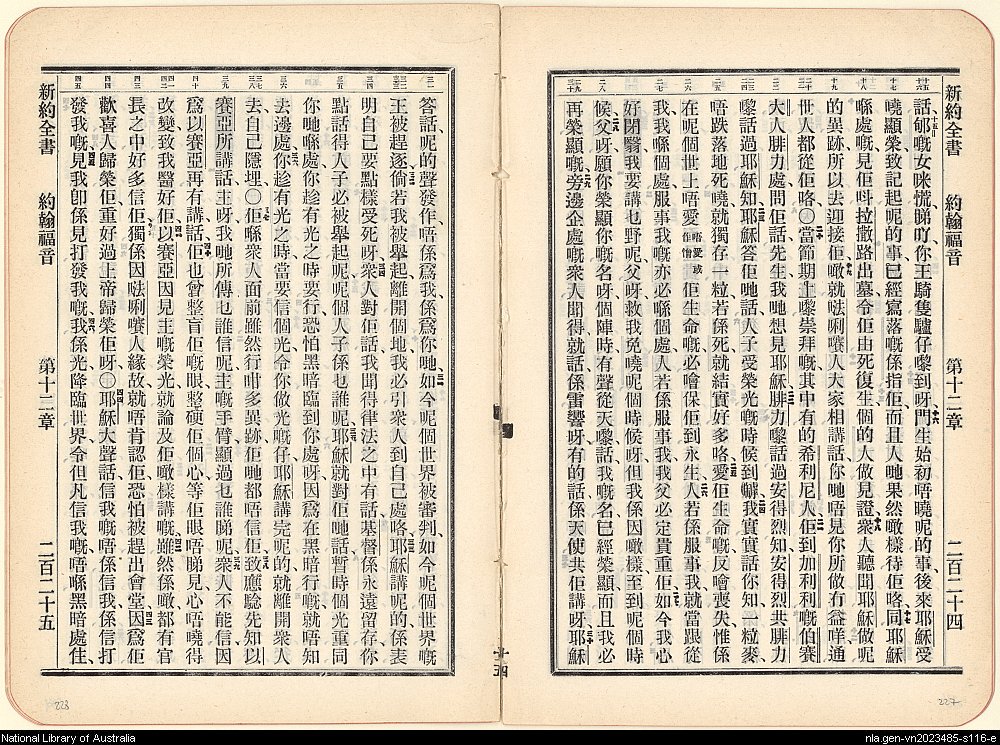 新約全書 約翰福音 第十二章 二百二十四
話郇嘅女咪慌睇吖你王騎隻驢仔嚟到呀門生始初唔曉呢的事後來耶穌受
曉顯榮致記起呢的事已經寫落嘅係指佢而且人哋果然噉樣待佢咯同耶穌
喺處嘅見佢呌拉撒路出墓令佢由死復生個的人做見證衆人聽聞耶穌做呢
的異跡所以去迎接佢噉就𠵽唎嚽人大家相講話你哋唔見你所做冇益咩通
世人都從佢咯〇當節期上嚟崇拜嘅其中有的希利尼人佢到加利利嘅伯賽
大人腓力處問佢話先生我哋想見耶穌腓力嚟話過安得烈知安得烈共腓力
嚟話過耶穌知耶穌答佢哋話人子受榮光嘅時候到嚹我實實話你知一粒麥
唔跌落地死嘵就獨存一粒若係死就結實好多咯愛佢生命嘅反噲喪失惟係
在呢個世上唔愛唔愛或作憎佢生命嘅必噲保佢到永生人若係服事我就當跟從
我我喺個處服事我嘅亦必喺個處人若係服事我我父必定貴重佢如今我心
好閉翳我要講乜野呢父呀救我免嘵呢個時候呀但我係因噉樣至到呢個時
候父呀願你榮顯你嘅名呀個陣時有聲從天嚟話我嘅名已經榮顯而且我必
再榮顯嘅旁邊企處嘅衆人聞得就話係雷響呀有的話係天使共佢講呀耶穌
答話呢的聲發作唔係爲我係爲你哋如今呢個世界被審判如今呢個世界嘅
王被趕逐倘若我被舉起離開個地我必引衆人到自己處咯耶穌講呢的係表
明自己要點樣受死呀衆人對佢話我聞得律法之中有話基督係永遠留存你
點話得人子必被舉起呢呢個人子係乜誰呢耶穌就對佢哋話暫時個光重同
你哋喺處你哋趁有光之時要行恐怕黑暗臨到你處呀因爲在黑暗行嘅就唔知
去邊處你趁有光之時當要信個光令你做光嘅仔耶穌講完呢的就離開衆人
去自己隱埋〇佢喺衆人面前雖然行咁多異跡佢哋都唔信佢致應驗先知以
賽亞所講話主呀我哋所傳乜誰信呢主嘅手臂顯過乜誰睇呢衆人不能信因
爲以賽亞再有講話佢乜曾整盲佢嘅眼整硬佢個心等佢眼唔睇見心唔曉得
改變致我醫好佢以賽亞因見主嘅榮光就論及佢噉樣講嘅雖然係噉都有官
長之中好多信佢獨係因𠵽唎嚽人緣故就唔肯認佢恐怕被趕出會堂因爲佢
歡喜人歸榮佢重好過上帝歸榮佢呀〇耶穌大聲話信我嘅唔係信我係信打
發我嘅嘅見我卽係見打發我嘅我係光降臨世界令但凡信我嘅唔喺黑暗處住
新約全書 約翰福音 第十二章 二百二十五
228
227
National Library of Australia
nla.gen-vn2023485-s116-e